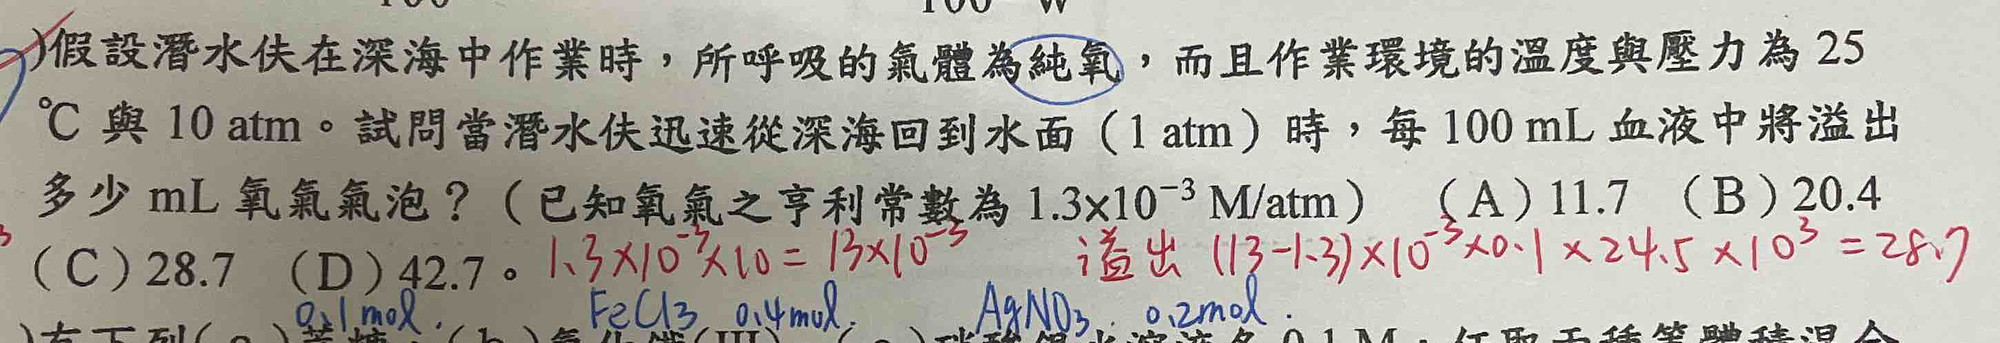 )假設潛水伕在深海中作業時，所呼吸的氣體為純氧，而且作業環境的溫度與壓力為 25
℃ 與 10 atm。試問當潛水伕迅速從深海回到水面（1 atm）時，每 100 mL 血液中將溢出
多少 mL 氧氣氣泡？（已知氧氣之亨利常數為 1.3×10⁻³ M/atm） （A）11.7 （B）20.4
（C）28.7 （D）42.7。 1.3×10⁻³×10 = 13×10⁻³ 溢出 (13-1.3)×10⁻³×0.1×24.5×10³ = 28.7
0.1mol. FeCl3 0.4mol. AgNO3. 0.2mol.